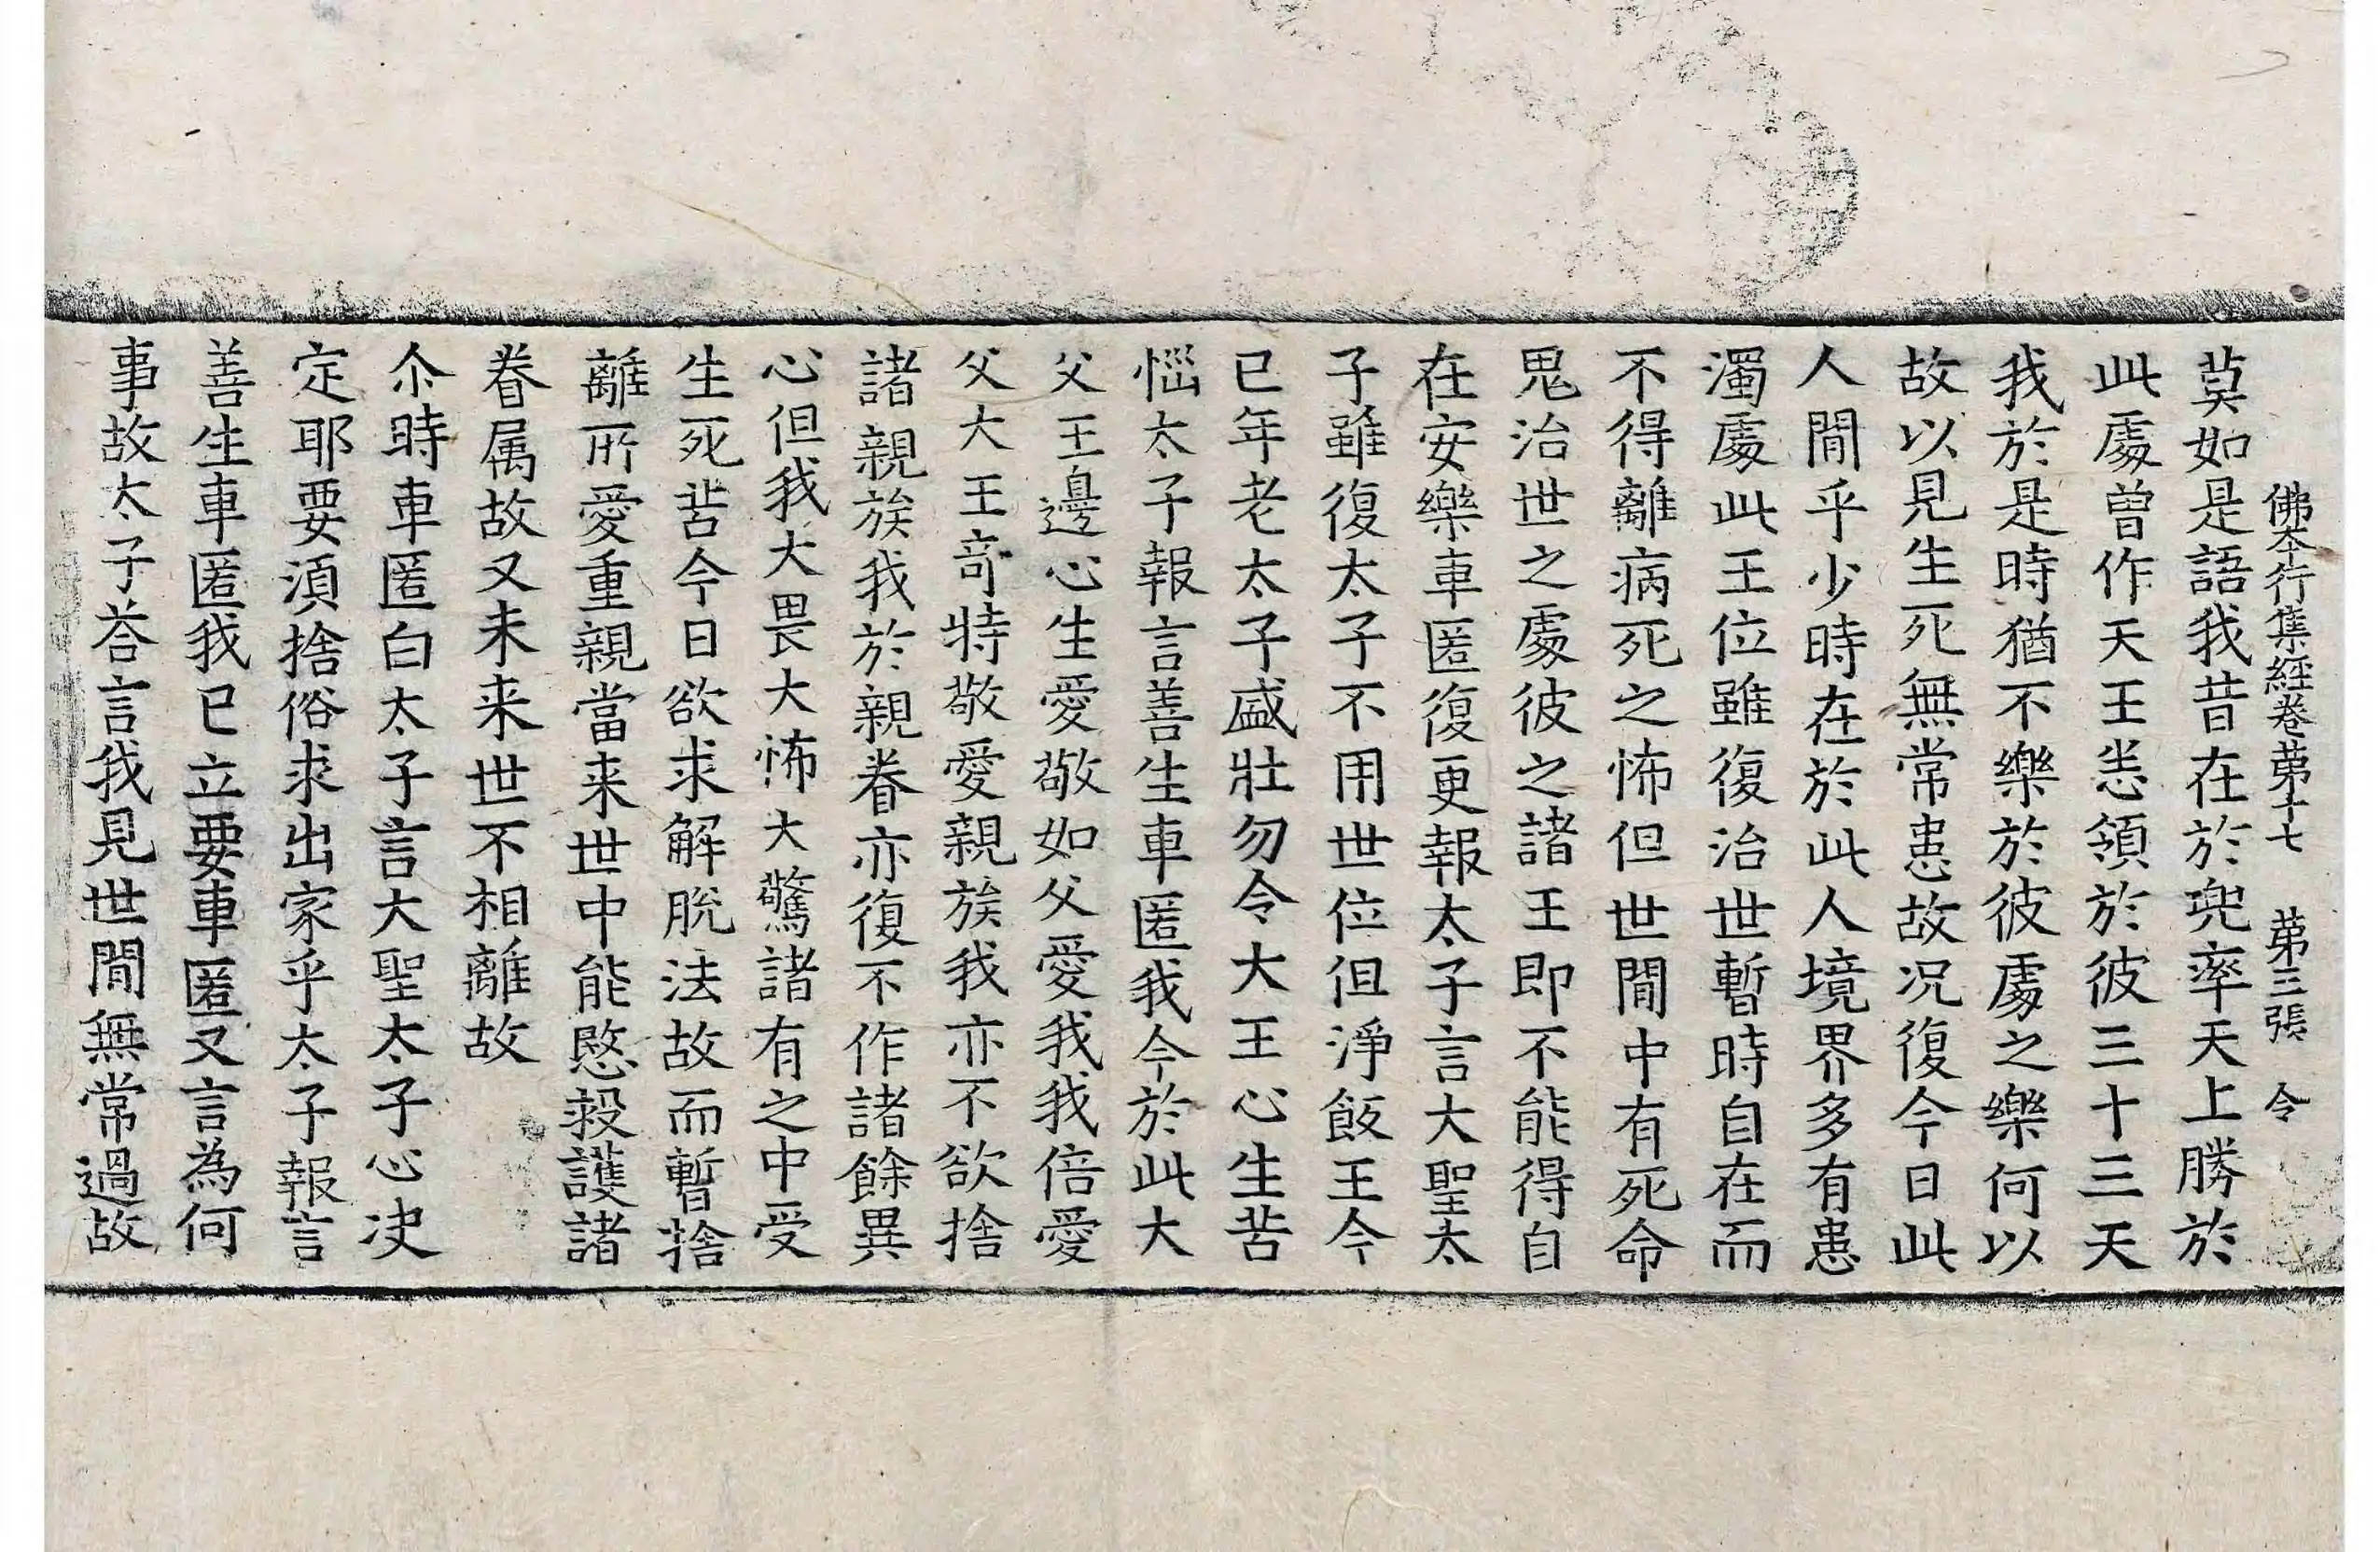 佛本行集經卷苐十七 苐三張 令
莫如是語我昔在於兜率天上勝於
此處曾作天王恙領於彼三十三天
我於是時猶不樂於彼處之樂何以
故以見生死無常患故况復今日此
人間乎少時在於此人境界多有患
濁處此王位雖復治世暫時自在而
不得離病死之怖但世間中有死命
鬼治世之處彼之諸王即不能得自
在安樂車匿復更報太子言大聖太
子雖復太子不用世位但淨飯王今
已年老太子盛壯勿令大王心生苦
惱太子報言善生車匿我今於此大
父王邊心生愛敬如父愛我我倍愛
父大王竒特敬愛親族我亦不欲捨
諸親族我於親眷亦復不作諸餘異
心但我大畏大怖大驚諸有之中受
生死苦今日欲求解脫法故而暫捨
離所愛重親當来世中能愍救護諸
眷属故又未来世不相離故
尒時車匿白太子言大聖太子心决
定耶要須捨俗求出家乎太子報言
善生車匿我已立要車匿又言為何
事故太子荅言我見世間無常過故